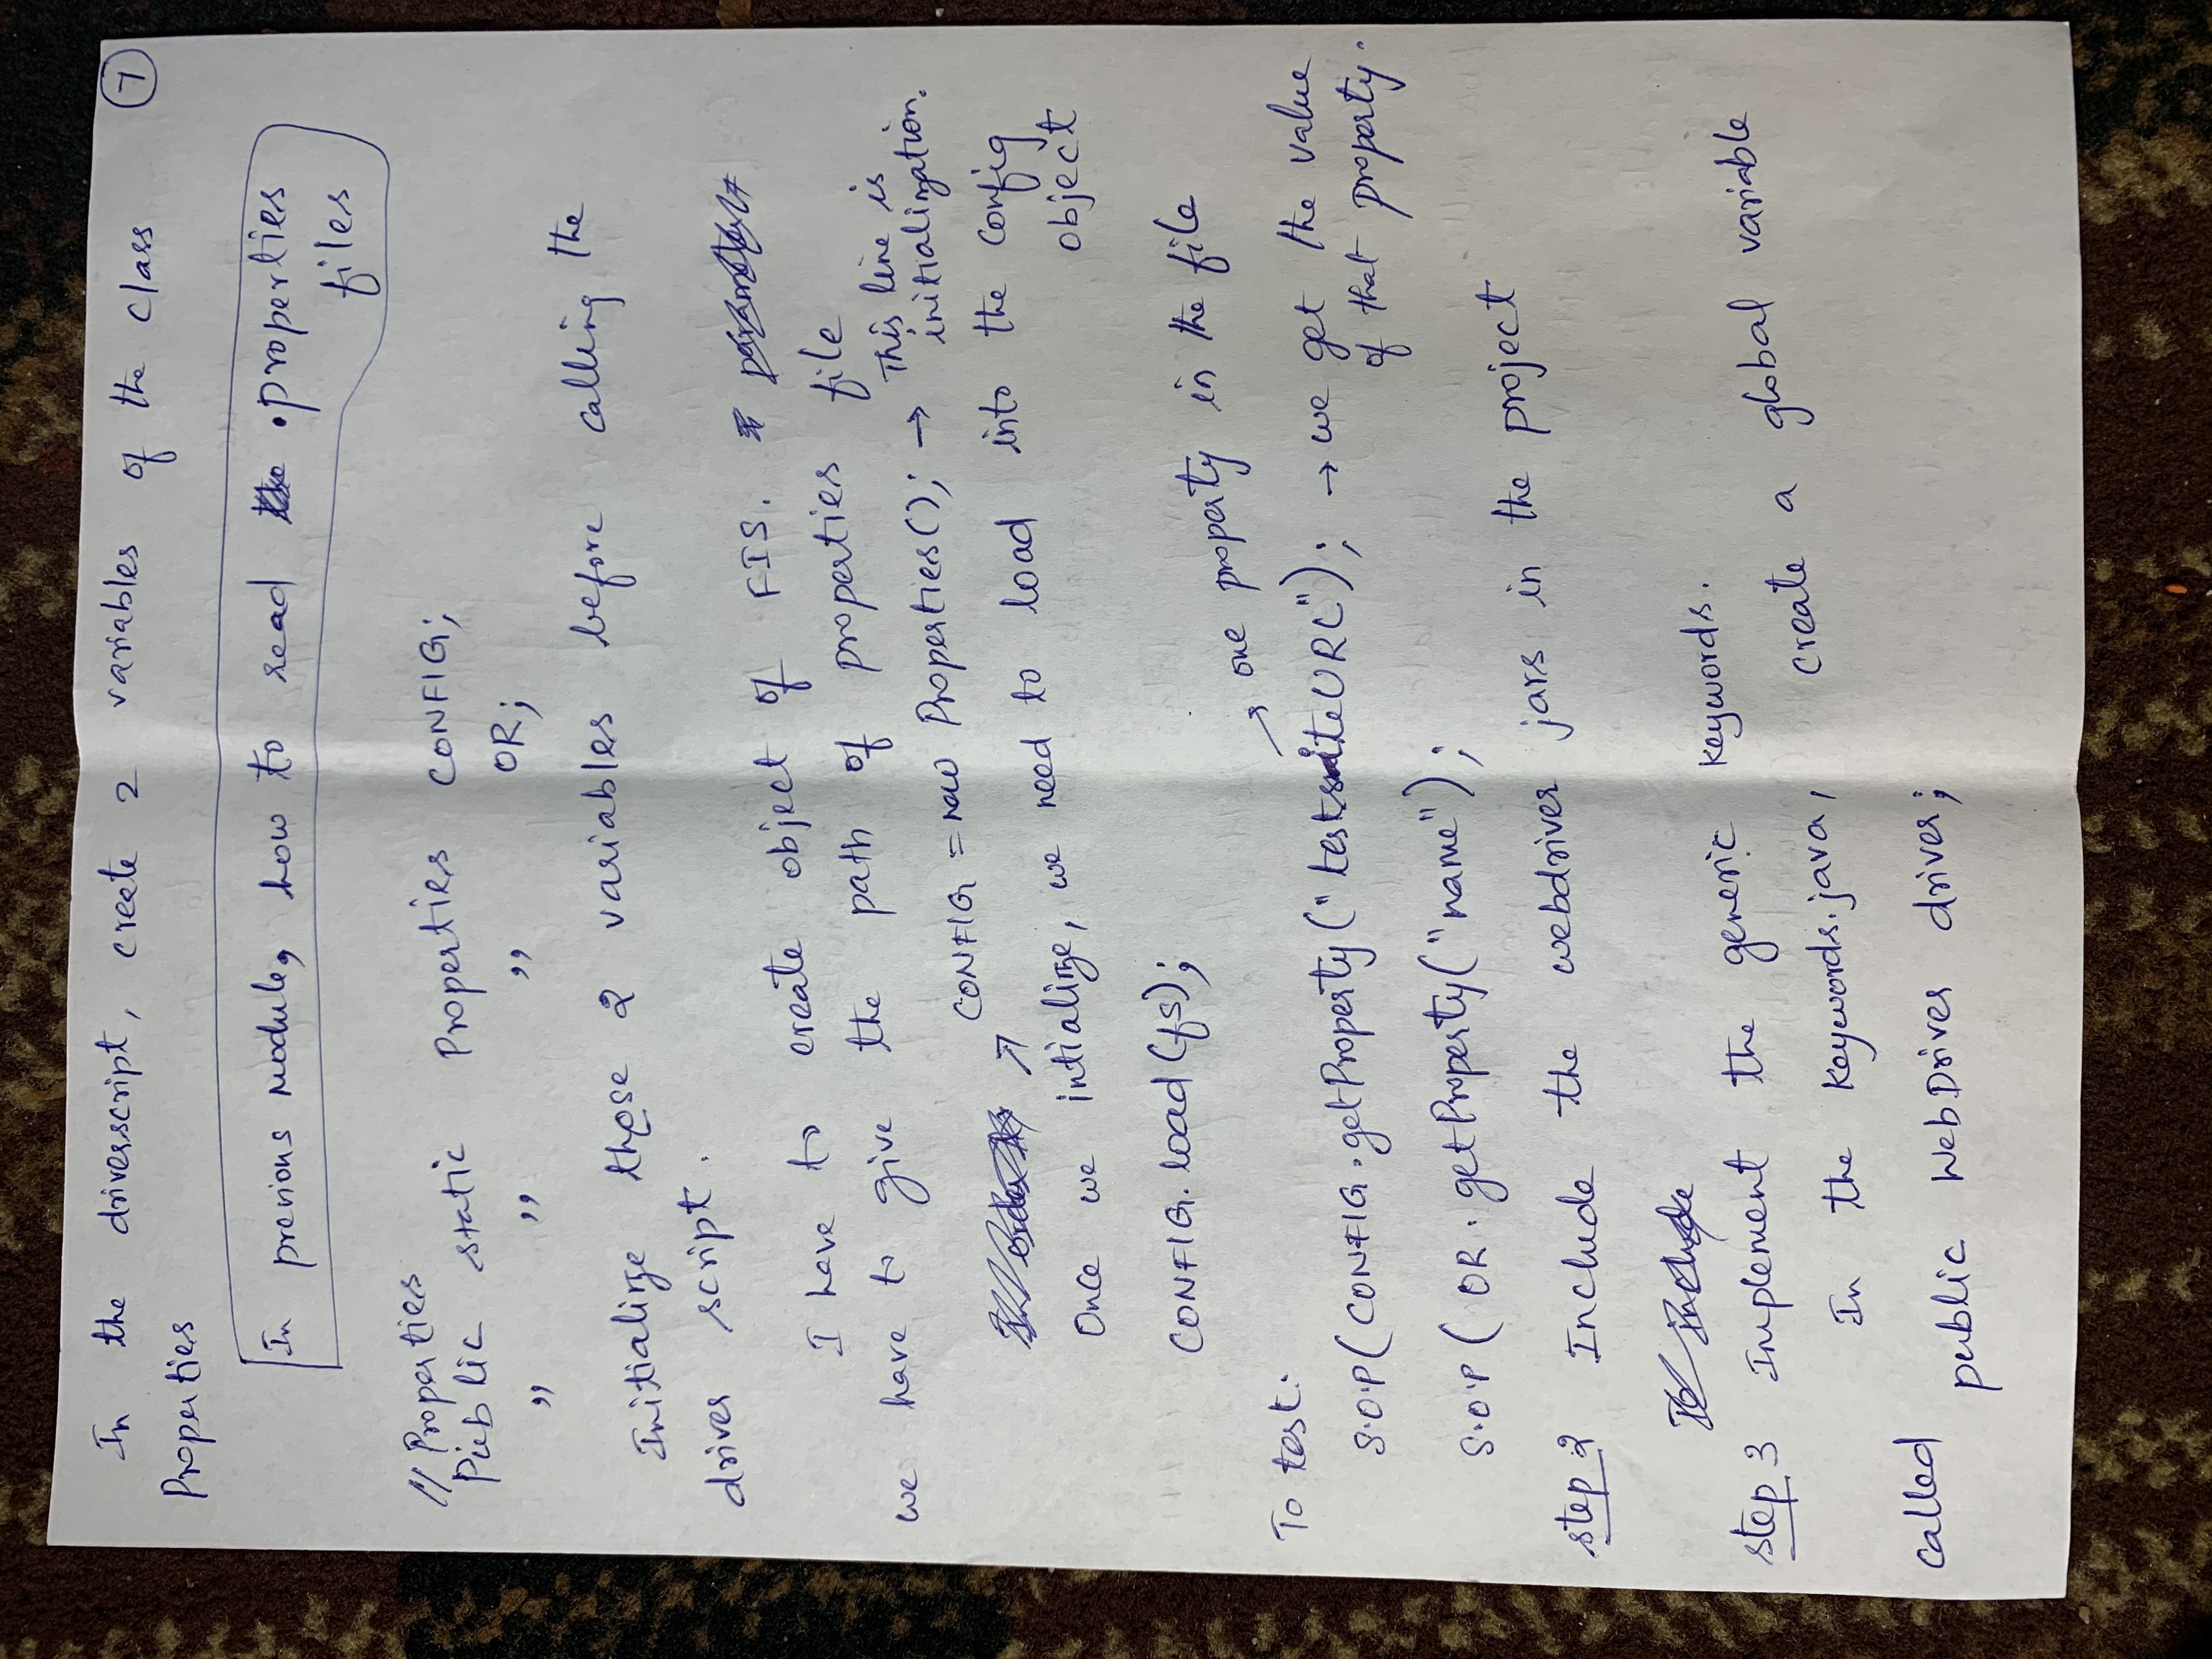 In the driverscript, create 2 variables of the class
7
Properties
In previous module, how to read .properties
files
// Properties
Public static Properties CONFIG;
,, ,, ,, OR;
Initialize those 2 variables before calling the
driver script.
I have to create object of FIS.
we have to give the path of properties file
CONFIG = new Properties(); → This line is
initialization.
Once we intialize, we need to load into the config
object
CONFIG.load(fs);
→ one property in the file
To test:
S.O.P(CONFIG.getProperty("testsiteURL"); → we get the value
of that property.
S.O.P( OR.getProperty("name");
step 2 Include the webdriver jars in the project
step 3 Implement the generic keywords.
In the Keywords.java, create a global variable
called
public WebDriver driver;